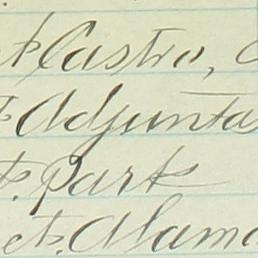 t Castro, C
t Adjunta
t. Park
ct. Alamo